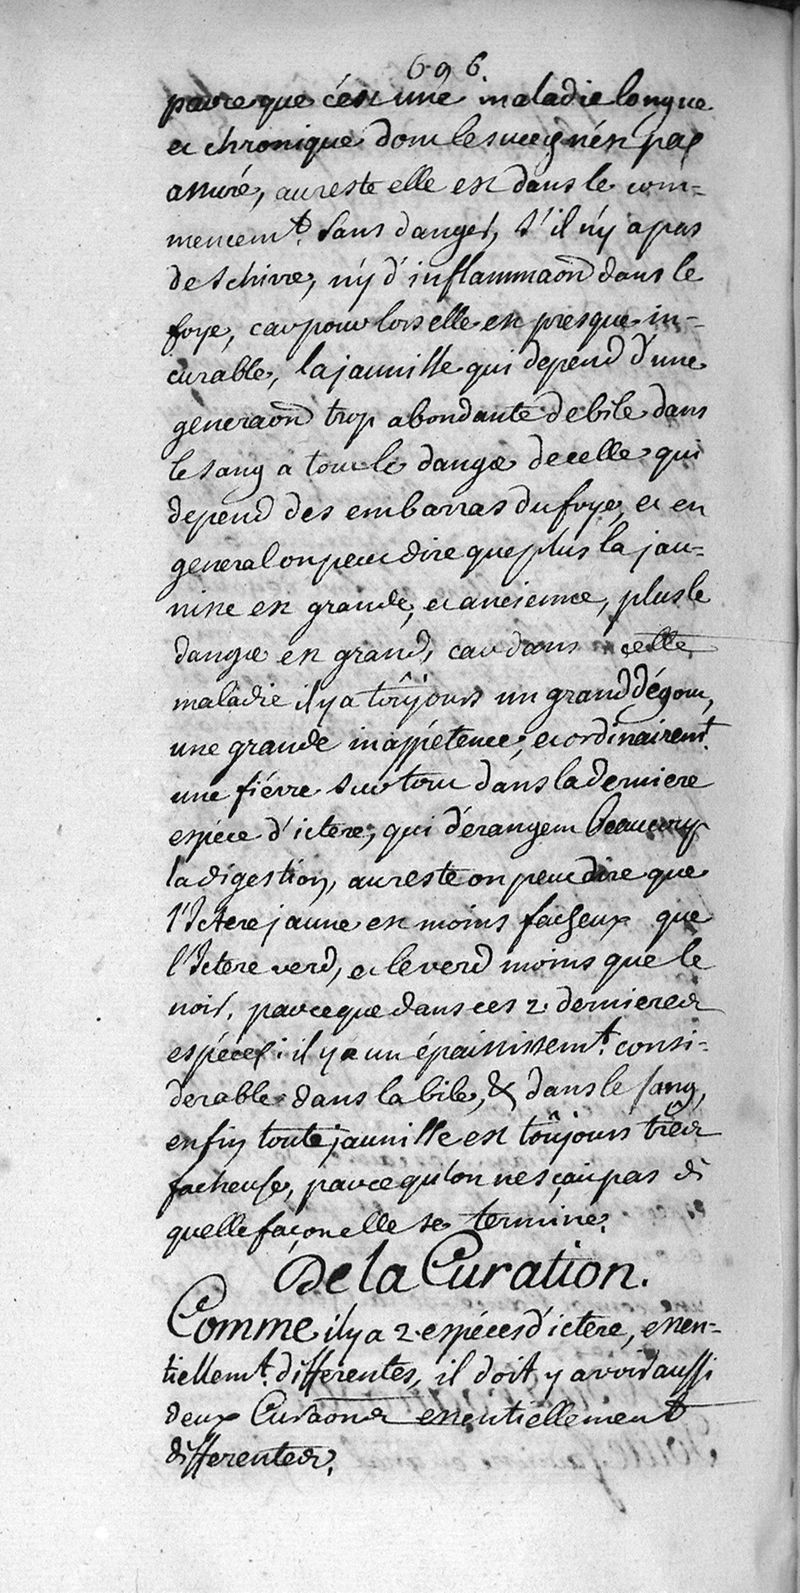 696.
parce que c'est une maladie longue
et chronique dont le succes n'est pas
assuré, au reste elle est dans le com-
mencemt. sans danger, s'il n'y a pas
de schirre, n'y d'inflammaon dans le
foye, car pour lors elle est presque in-
curable, la jaunisse qui depend d'une
generaon trop abondante de bile dans
le sang a tout le danger de celle qui
depend des embarras du foye, et en
general on peut dire que plus la jau-
nisse est grande, et ancienne, plus le
danger est grand, car dans cette
maladie il y a toûjours un grand dégout,
une grande inappétence, et ordinairemt.
une fiévre surtout dans la derniere
espéce d'ictere, qui dérangent beaucoup
la digestion, au reste on peut dire que
l'Ictere jaune est moins facheux que
l'Ictere verd, et le verd moins que le
noir, parce que dans ces 2 dernieres
espéces il y a un épaississemt. consi-
derable dans la bile, & dans le sang,
enfin toute jaunisse est toûjours très
facheuse, parce qu'on ne sçait pas de
quelle façon elle se termine.
De la Curation.
Comme il y a 2 espéces d'ictere, essen-
tiellemt. differentes, il doit y avoir aussi
deux Curaons essentiellement
differentes.